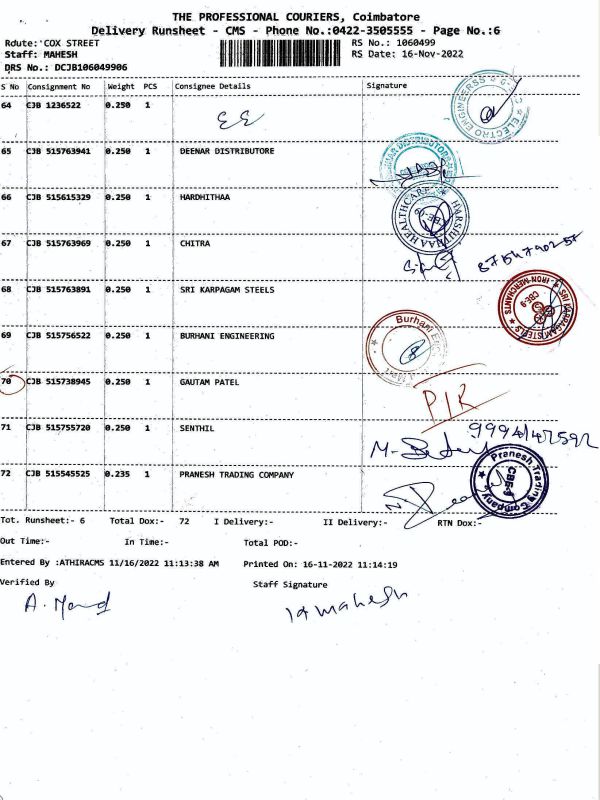 THE PROFESSIONAL COURIERS, Coimbatore
Delivery Runsheet - CMS - Phone No.:0422-3505555 - Page No.:6
Route: COX STREET RS No.: 1060499
Staff: MAHESH RS Date: 16-Nov-2022
DRS No.: DCJB106049906
S No Consignment No Weight PCS Consignee Details Signature
64 CJB 1236522 0.250 1 EE
ELECTRO ENGINEERSS
65 CJB 515763941 0.250 1 DEENAR DISTRIBUTORE
66 CJB 515615329 0.250 1 HARDHITHAA
HARSHITHAA HEALTHCARE CBE-9
67 CJB 515763969 0.250 1 CHITRA
68 CJB 515763891 0.250 1 SRI KARPAGAM STEELS
SRI KARPAGAM STEELS IRON MERCHANTS CBE-9
69 CJB 515756522 0.250 1 BURHANI ENGINEERING
Burhani
70 CJB 515738945 0.250 1 GAUTAM PATEL
71 CJB 515755720 0.250 1 SENTHIL
72 CJB 515545525 0.235 1 PRANESH TRADING COMPANY
Pranesh Trading Company CBE-9
Tot. Runsheet:- 6 Total Dox:- 72 I Delivery:- II Delivery:- RTN Dox:-
Out Time:- In Time:- Total POD:-
Entered By :ATHIRACMS 11/16/2022 11:13:38 AM Printed On: 16-11-2022 11:14:19
Verified By Staff Signature
mahesh